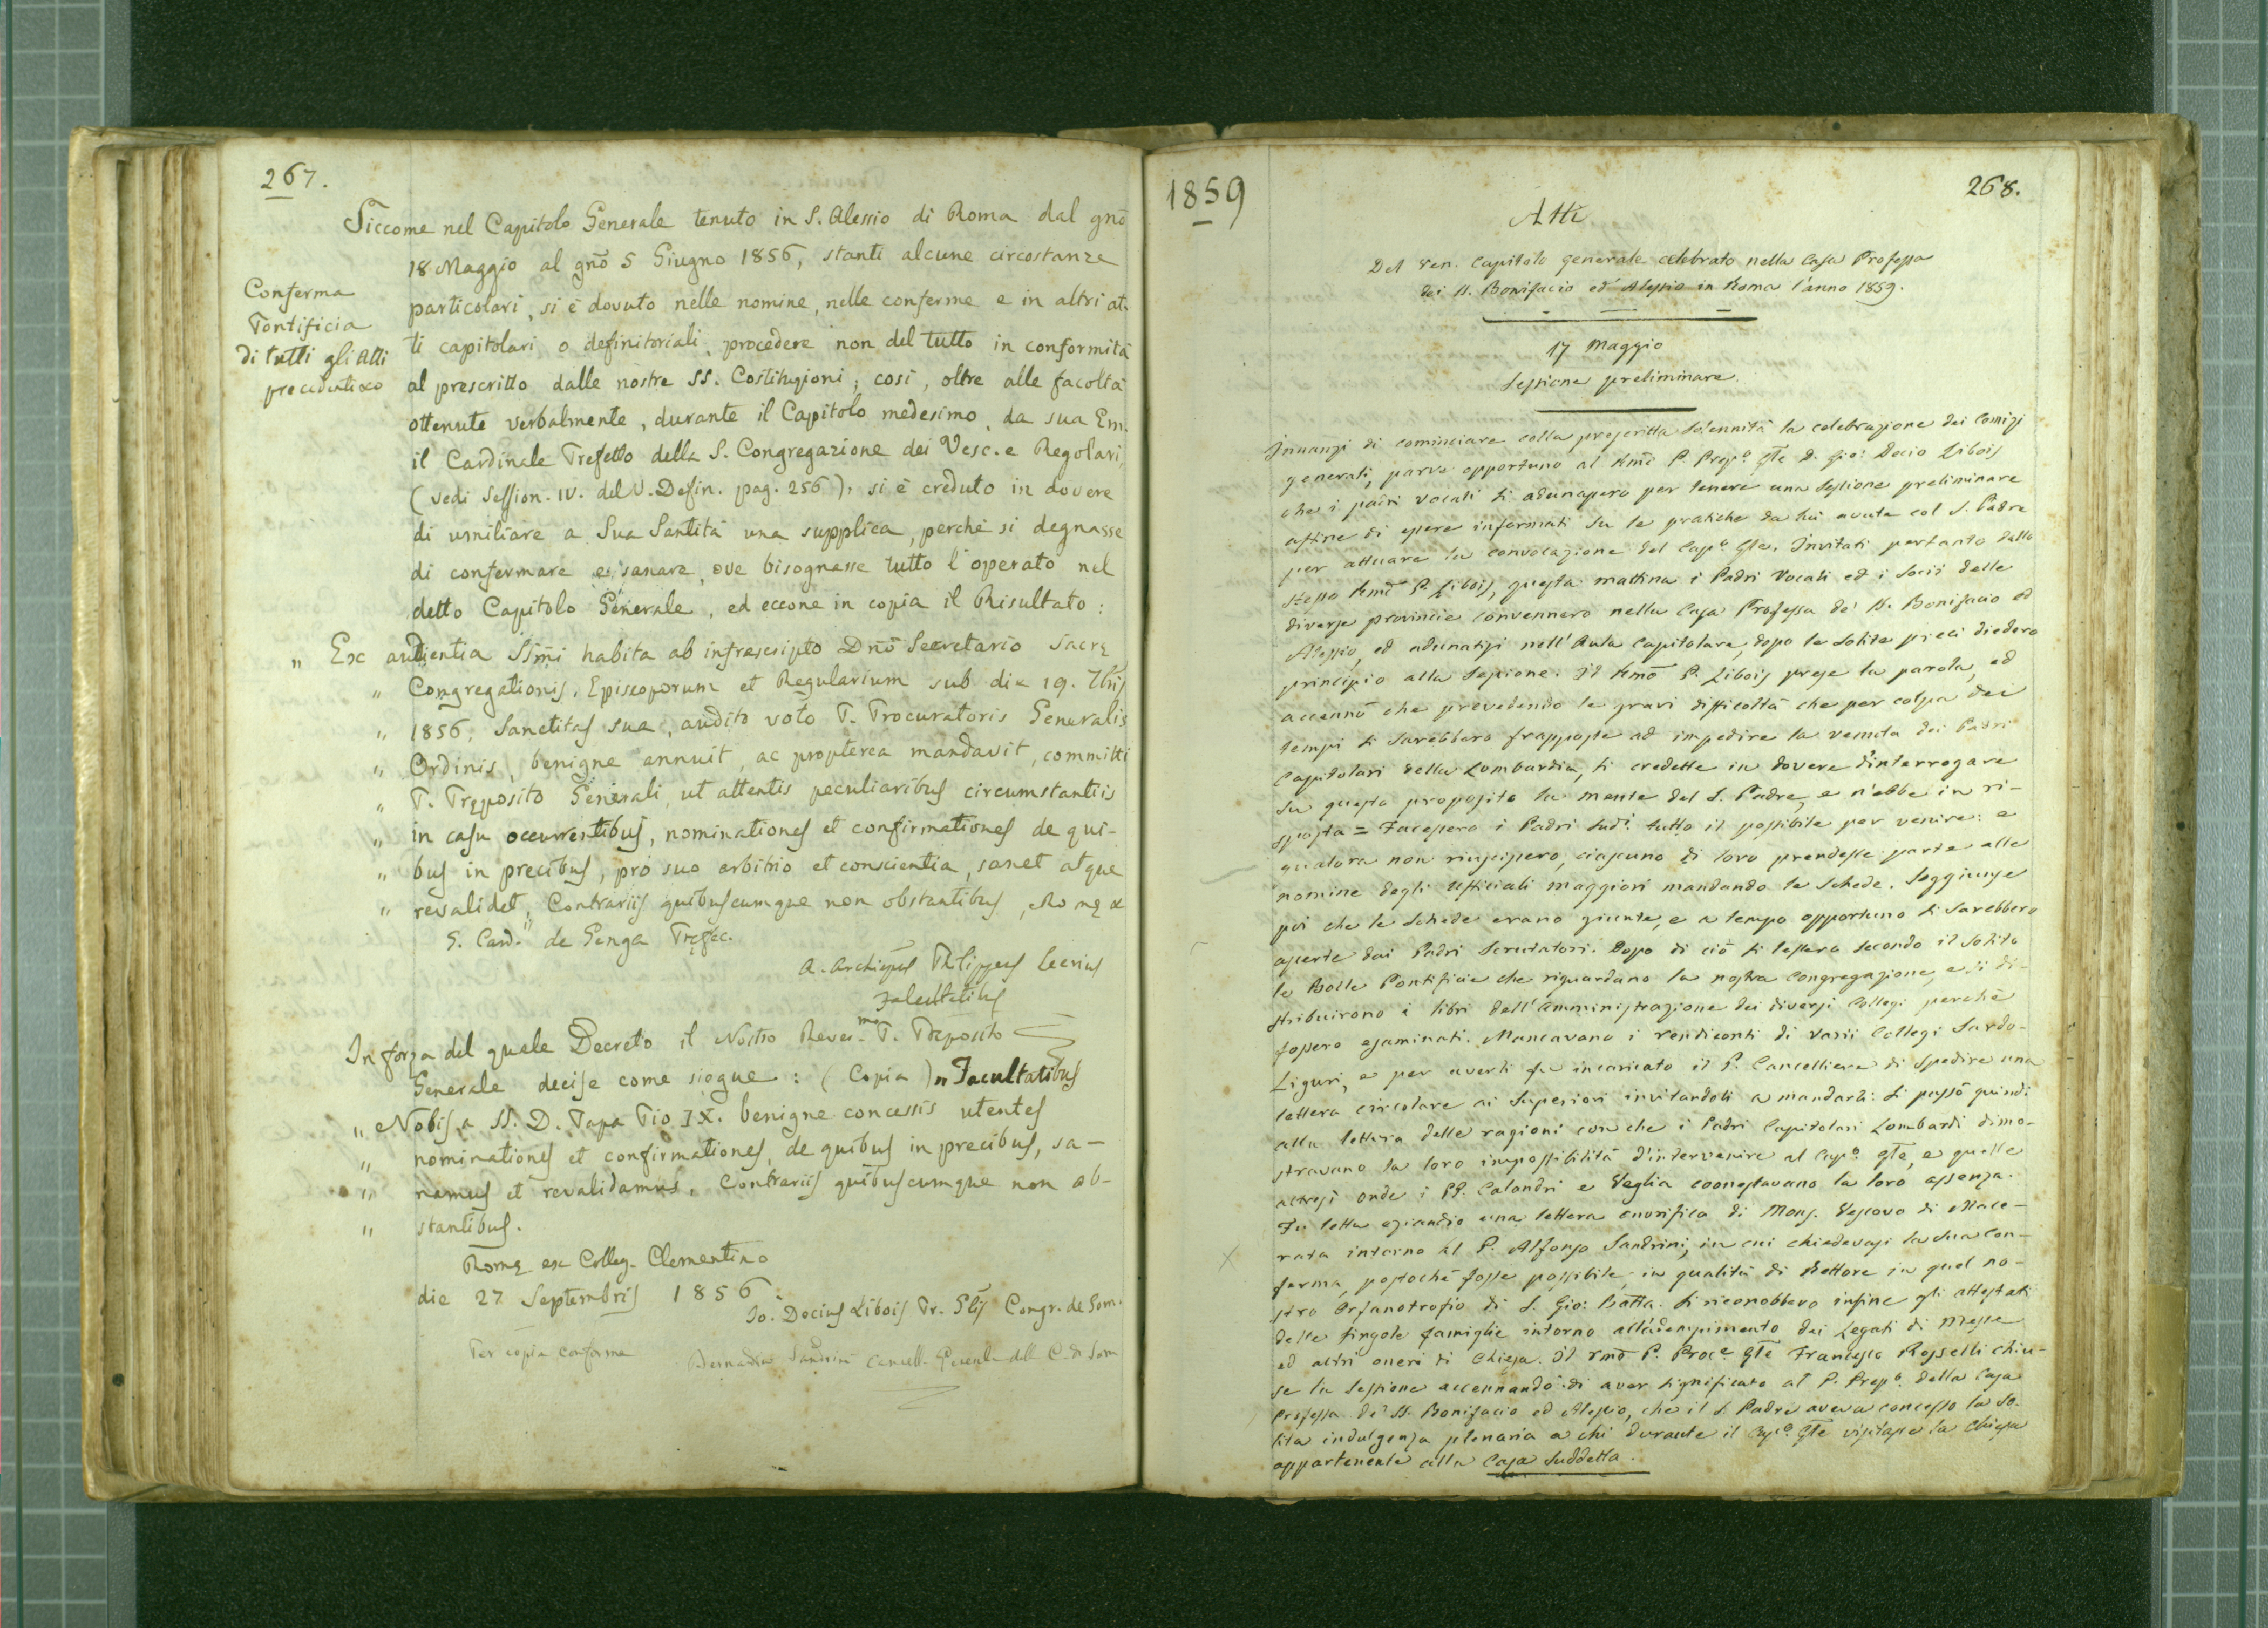 267.
Siccome nel Capitolo Generale tenuto in S. Alessio di Roma dal gnō
18 Maggio al gnō 5 Giugno 1856, stanti alcune circostanze
Conferma
Pontificia
di tutti gli Atti
precedenti
particolari, si è dovuto nelle nomine, nelle conferme e in altri at-
ti capitolari o definitoriali, procedere non del tutto in conformità
al prescritto dalle nostre SS. Costituzioni; così, oltre alle facoltà
ottenute verbalmente, durante il Capitolo medesimo, da sua Em.
il Cardinale Prefetto della S. Congregazione dei Vesc. e Regolari,
(vedi Session. IV. del V. Defin. pag. 256), si è creduto in dovere
di umiliare a Sua Santità una supplica, perchè si degnasse
di confermare e sanare, ove bisognasse tutto l'operato nel
detto Capitolo Generale, ed eccone in copia il Risultato:
„ Ex audientia SSm̄i habita ab infrascripto Dnō Secretario Sacrę
„ Congregationis, Episcoporum et Regularium sub die 19. 7bris
„ 1856, Sanctitas sua, audito voto P. Procuratoris Generalis
„ Ordinis, benigne annuit, ac propterea mandavit, committi
„ P. Pręposito Generali, ut attentis peculiaribus circumstantiis
„ in casu occurrentibus, nominationes et confirmationes de qui-
„ bus in precibus, pro suo arbitrio et conscientia, sanet atque
„ revalidet, Contrariis quibuscumque non obstantibus, Romę
G. Card. de Genga Pręfec.
A. Archiepus Philippen Secrius
Facultatibus
In forza del quale Decreto il Nostro Rever.mo P. Preposito
Generale decise come siegue: (Copia) „ Facultatibus
„ Nobis a SS. D. Papa Pio IX. benigne concessis utentes
„ nominationes et confirmationes, de quibus in precibus, sa-
„ namus et revalidamus, Contrariis quibuscumque non ob-
„ stantibus.
Romę ex Colleg. Clementino
die 27 Septembris 1856.
Io. Decius Libois Pr. Glis Congr. de Som.
Per copia conforme
Bernardin Sandrini Cancell. Generale della C. di Som
1859
268.
Atti
Del Ven. Capitolo generale celebrato nella Casa Professa
dei SS. Bonifacio ed Alessio in Roma l'anno 1859.
17 Maggio
Sessione preliminare.
Innanzi di cominciare colla prescritta solennità la celebrazione dei Comizj
generali, parve opportuno al Rmō P. Prep.o Gle D. Gio: Decio Libois
che i padri Vocali si adunassero per tenere una Sessione preliminare
affine di essere informati su le pratiche da lui avute col S. Padre
per attuare la convocazione del Cap.o Gle. Invitati pertanto dallo
stesso Rmō P. Libois, questa mattina i Padri Vocali ed i Socii delle
diverse provincie convennero nella Casa Professa de' SS. Bonifacio ed
Alessio, ed adunatisi nell'Aula Capitolare, dopo le solite preci diedero
principio alla Sessione. Il Rmō P. Libois prese la parola, ed
accennò che prevedendo le gravi difficoltà che per colpa dei
tempi si sarebbero frapposte ad impedire la venuta dei Padri
Capitolari della Lombardia, si credette in dovere d'interrogare
su questo proposito la mente del S. Padre, e n'ebbe in ri-
sposta = Facessero i Padri sud.i tutto il possibile per venire: e
qualora non riuscissero, ciascuno di loro prendesse parte alle
nomine degli Ufficiali maggiori mandando le schede. Soggiunse
poi che le schede erano giunte, e a tempo opportuno si sarebbero
aperte dai Padri Scrutatori. Dopo di ciò si lessero secondo il solito
le Bolle Pontificie che riguardano la nostra Congregazione, e si di-
stribuirono i libri dell'Amministrazione dei diversi Collegi perchè
fossero esaminati. Mancavano i rendiconti di varii Collegi Sardo-
Liguri, e per averli fu incaricato il P. Cancelliere di spedire una
lettera circolare ai Superiori invitandoli a mandarli. Si passò quindi
alla lettura delle ragioni con che i Padri Capitolari Lombardi dimo-
stravano la loro impossibilità d'intervenire al Cap.o Gle, e quelle
altresì onde i PP. Calandri e Veglia coonestavano la loro assenza.
Fu letta eziandio una lettera onorifica di Mons. Vescovo di Mace-
rata intorno al P. Alfonso Sandrini, in cui chiedevasi la sua con-
ferma, postochè fosse possibile, in qualità di Rettore in quel no-
stro Orfanotrofio di S. Gio: Batta. Si riconobbero infine gli attestati
delle singole famiglie intorno all'adempimento dei Legati di Messe
ed altri oneri di Chiesa. Il Rmō P. Proc.e Gle Francesco Rosselli chiu-
se la Sessione accennando di aver significato al P. Prep.o della Casa
Professa de' SS. Bonifacio ed Alessio, che il S. Padre aveva concesso la so-
lita indulgenza plenaria a chi durante il Cap.o Gle visitasse la Chiesa
appartenente alla Casa suddetta.